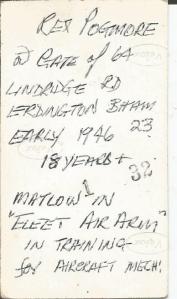 REX POGMORE
@ GATE of 64
LINDRIDGE RD
ERDINGTON BHAM
EARLY 1946 23
18 YEARS +
32
MATLOW IN
"FLEET AIR ARM"
IN TRAINING
for AIRCRAFT MECH.